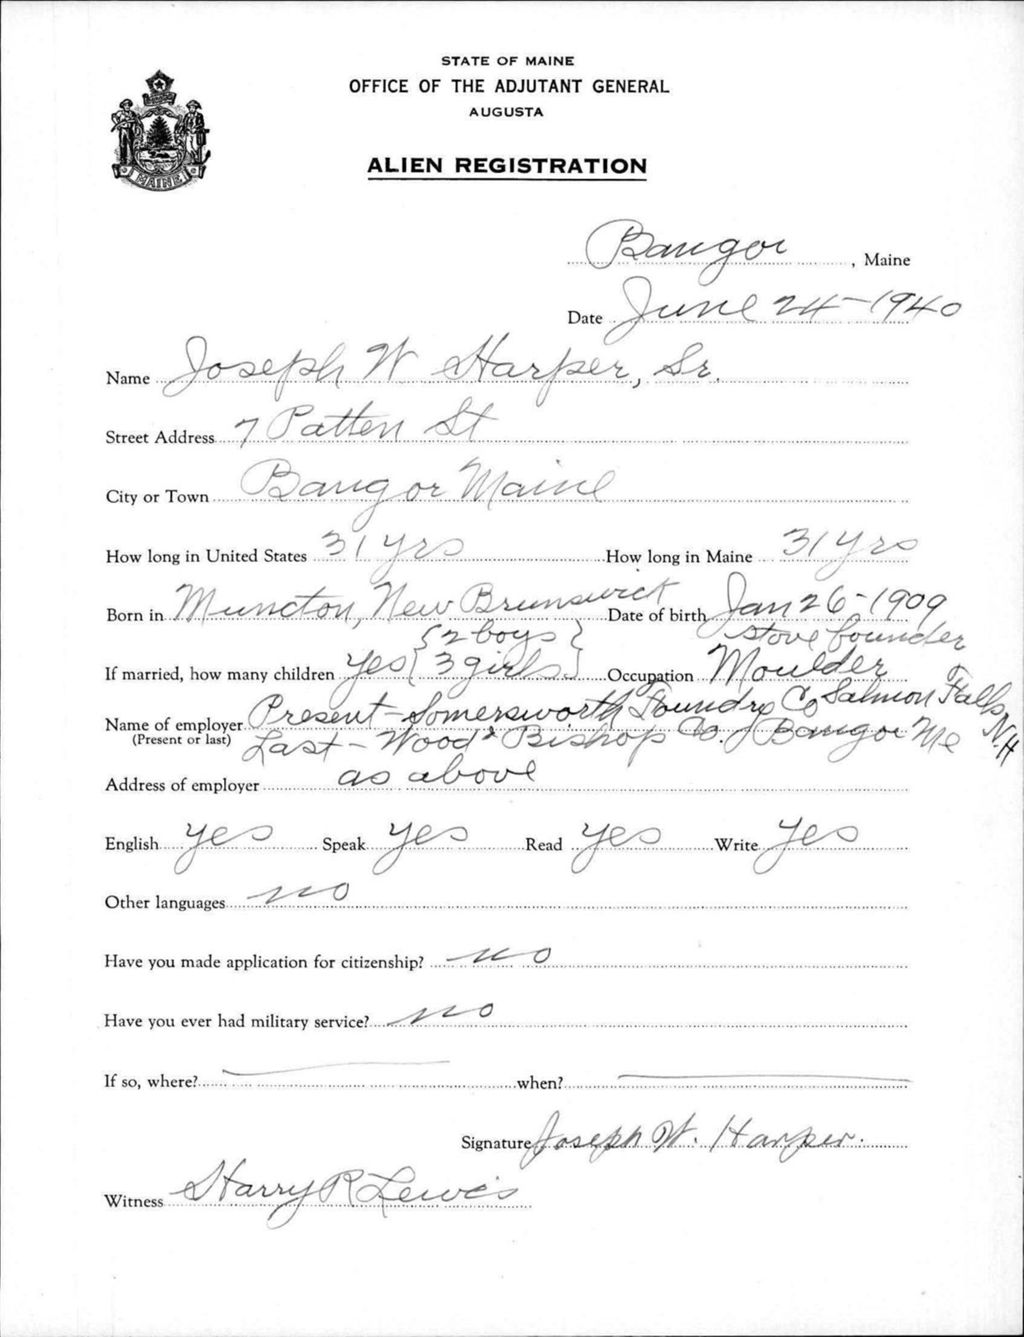 STATE OF MAINE
OFFICE OF THE ADJUTANT GENERAL
AUGUSTA
ALIEN REGISTRATION
MAINE
Bangor, Maine
Date June 24-1940
Name Joseph W Harper, Sr.
Street Address 7 Patten St
City or Town Bangor Maine
How long in United States 31 yrs How long in Maine 31 yrs
Born in Muncton, New Brunswick Date of birth Jan 26-1909
{2 boys} stove founder
If married, how many children yes {3 girls} Occupation Moulder
Name of employer Present-Somersworth Foundry Co Salmon Falls, N.H
(Present or last) Last-Wood & Bishop Co. Bangor Me
Address of employer as above
English yes Speak yes Read yes Write yes
Other languages no
Have you made application for citizenship? no
Have you ever had military service? no
If so, where? when?
Signature Joseph W. Harper.
Witness Harry R Lewis